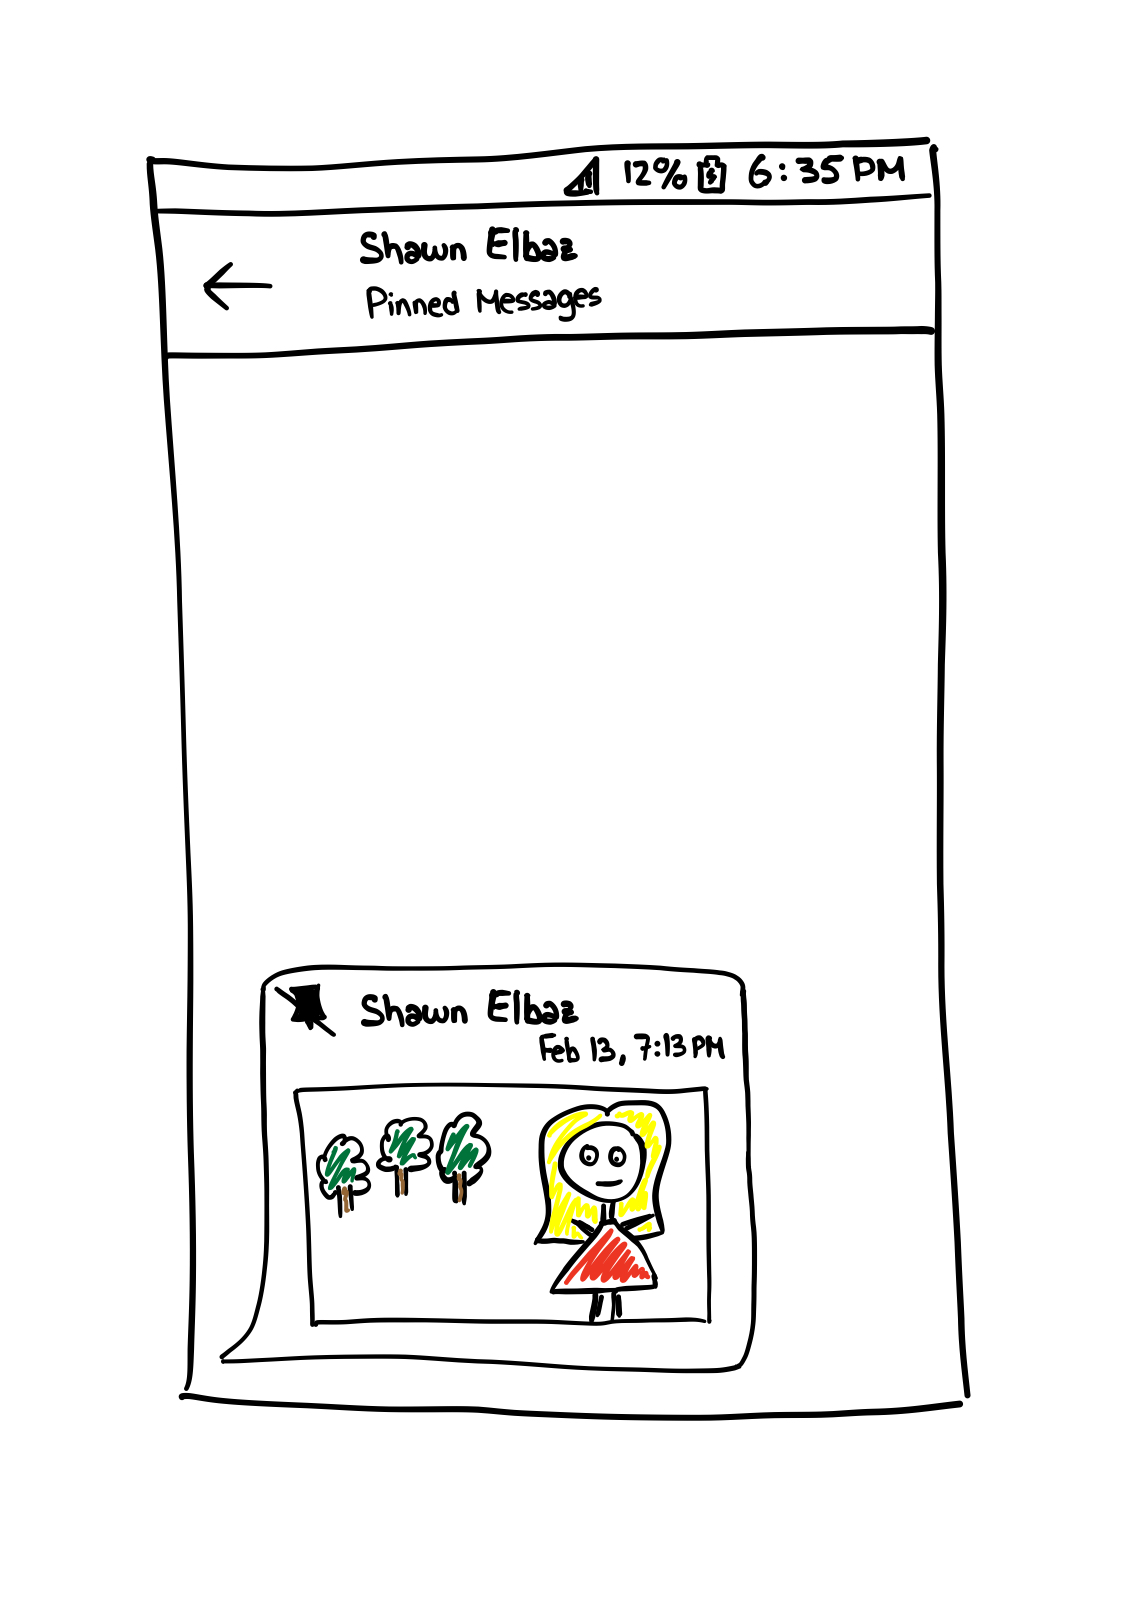 12% 6:35 PM
Shawn Elbaz
Pinned Messages
Shawn Elbaz
Feb 13, 7:13 PM